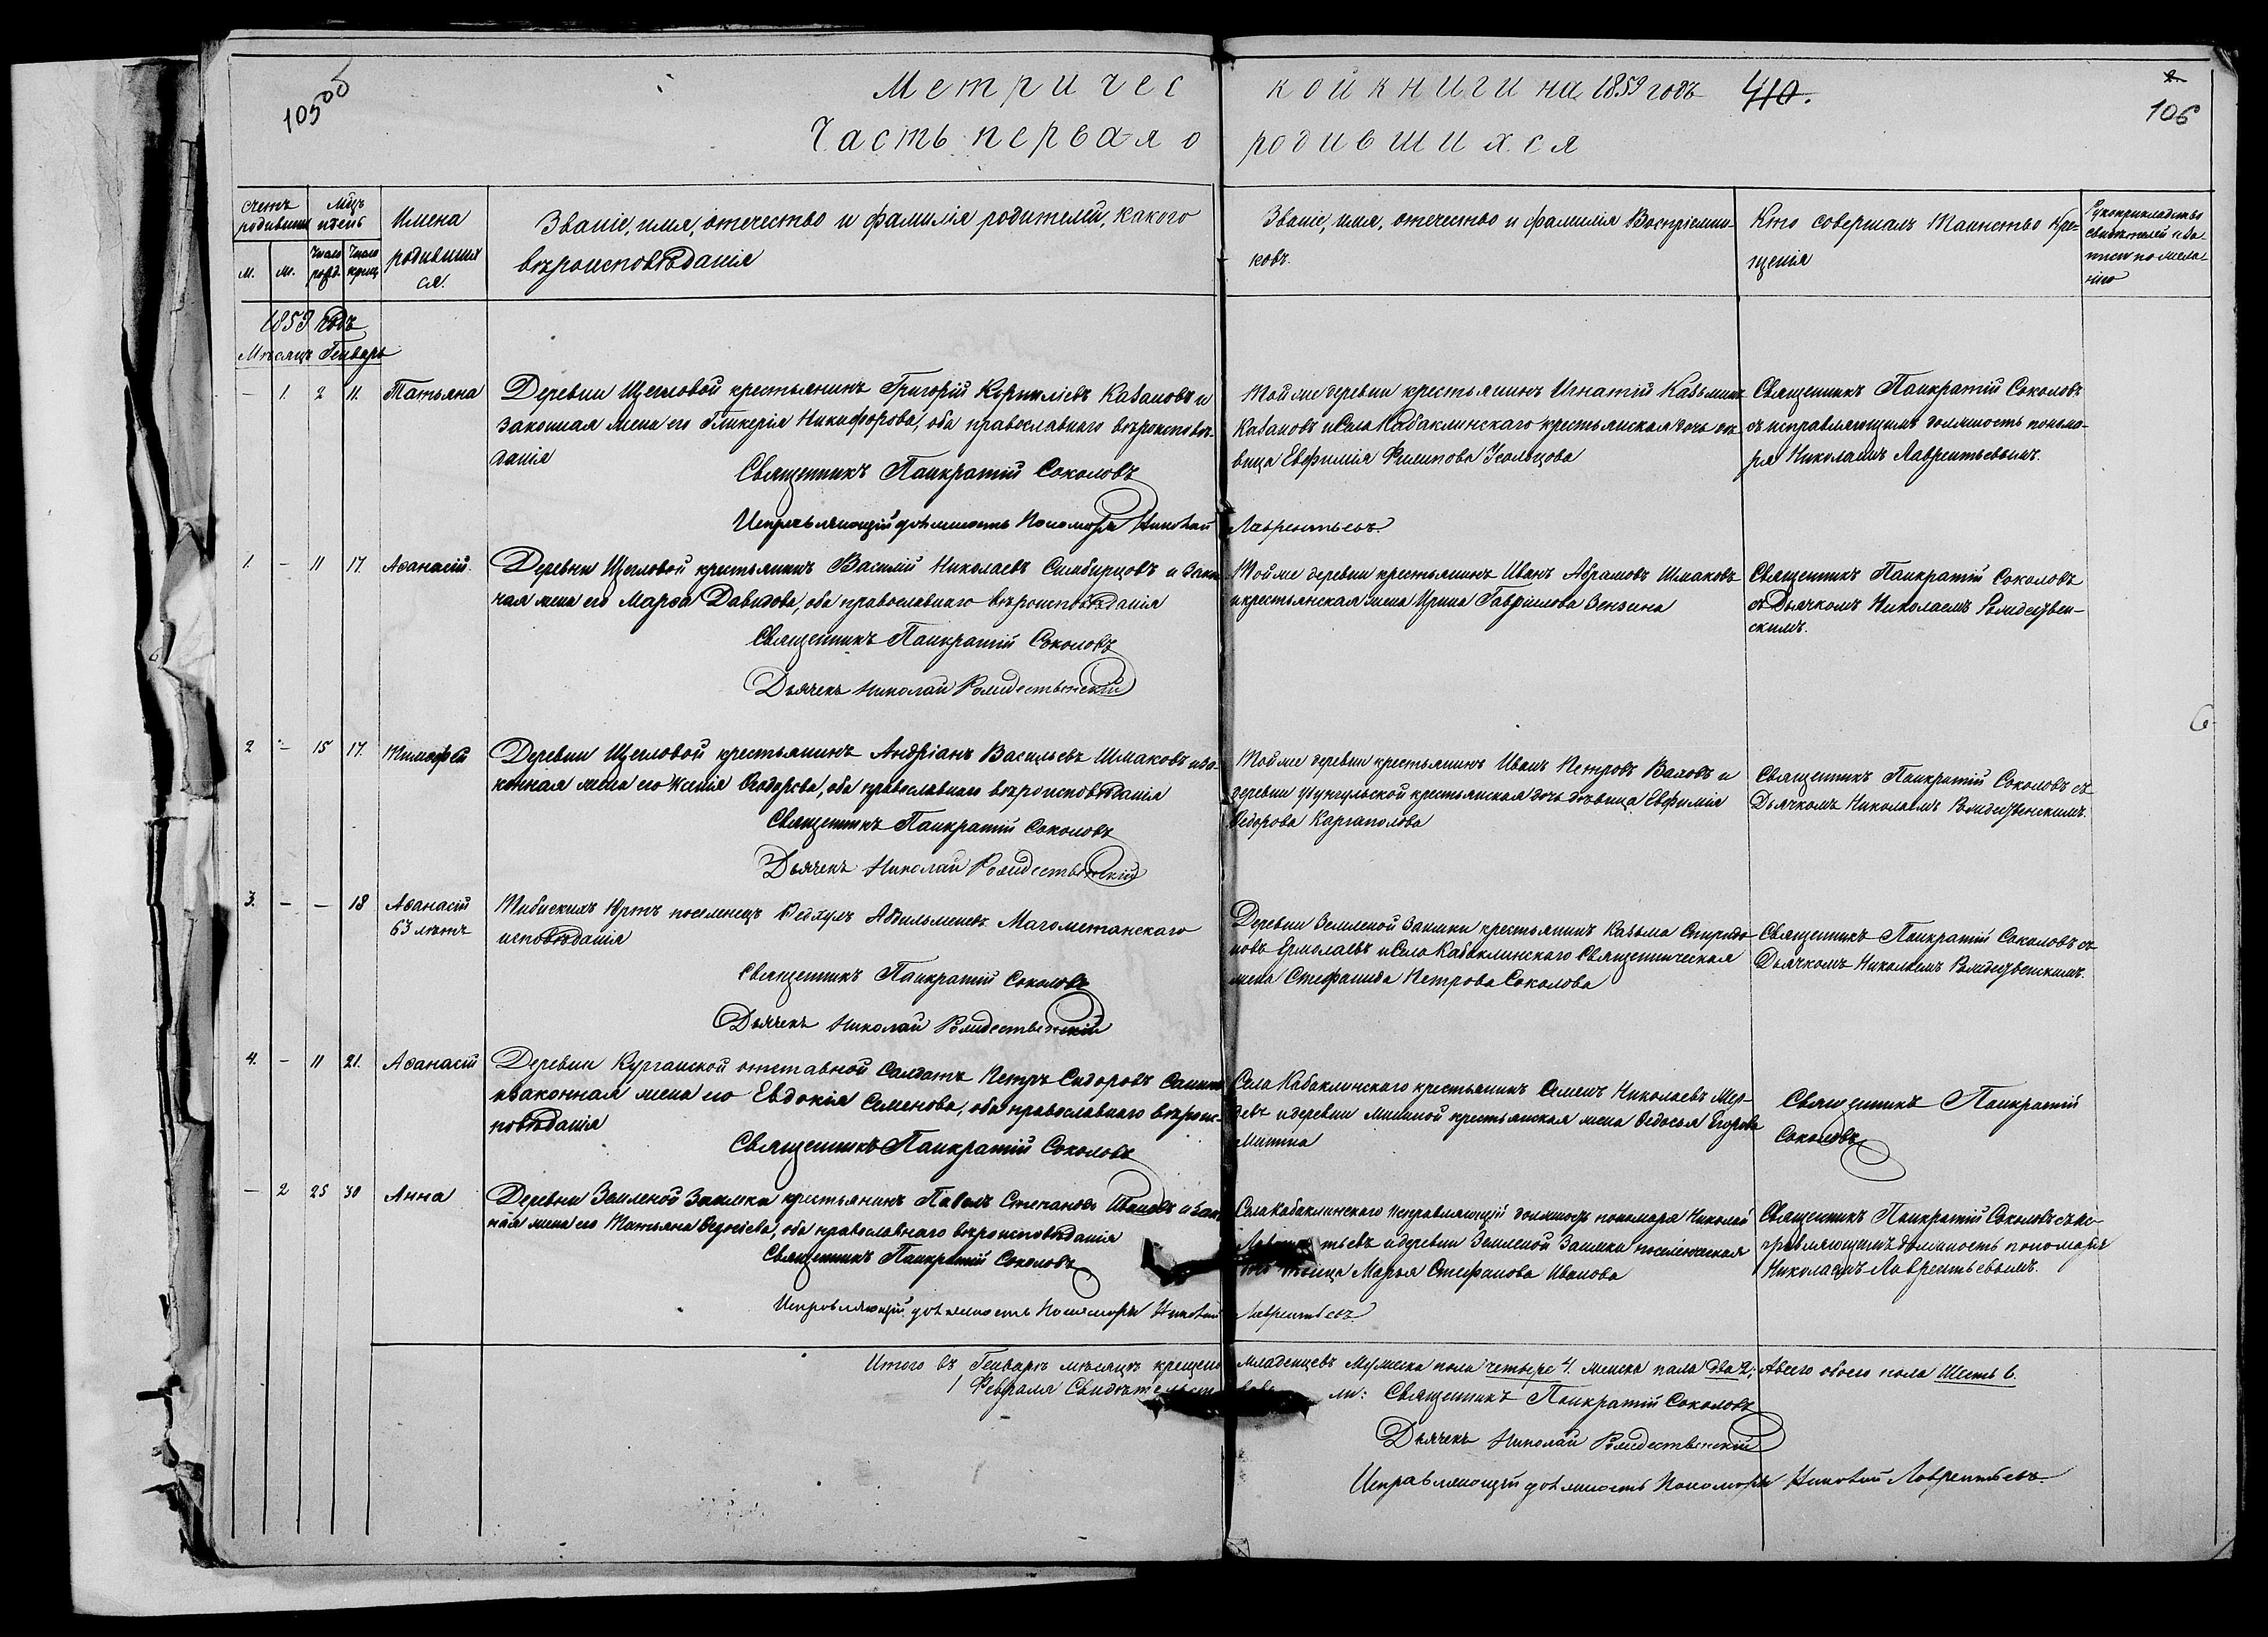 Метричес кой книги на 1859 годъ 410.
105об
2.
106
Часть первая о родившихся
Счетъ родивших
Мцъ и день
Имена родившихся.
Званіе, имя, отечество и фамилія родителей, какого
вѣроисповѣданія
Званіе, имя, отечество и фамилія Воспріемни-
ковъ.
Кто совершалъ Таинство Кре-
щенія
Рукоприкладство
свидѣтелей
м.
ж.
Число рожд.
Число крещ.
1859 годъ
Мѣсяцъ Генварь
— 1. 2 11. Татьяна
Деревни Щегловой крестьянинъ Григорій Корниліевъ Казановъ и
законная жена его Гликерія Никифорова, оба православнаго вѣроисповѣ-
данія
Священникъ Панкратій Соколовъ
Исправляющій должность Пономаря Николай Лаврентьевъ
Тойже деревни крестьянинъ Игнатій Казьминъ
Казановъ и Села Кабаклинскаго крестьянская дочь дѣ-
вица Евфимія Филипова Усольцова
Священникъ Панкратій Соколовъ
съ исправляющимъ должность понома-
ря Николаемъ Лаврентьевымъ.
1. — 11 17. Аѳанасій
Деревни Щегловой крестьянинъ Василій Николаевъ Симбирцовъ и закон
ная жена его Марѳа Давидова, оба православнаго вѣроисповѣданія
Священникъ Панкратій Соколовъ
Дьячекъ Николай Рождественскій
Тойже деревни крестьянинъ Иванъ Абрамовъ Шмаковъ
и крестьянская жена Ирина Гавріилова Зензина
Священникъ Панкратій Соколовъ
съ Дьячкомъ Николаемъ Рождествен-
скимъ.
2 — 15 17. Тимофей
Деревни Щегловой крестьянинъ Андріанъ Васильевъ Шмаковъ и за-
конная жена его Ксенія Ѳедорова, оба православнаго вѣроисповѣданія
Священникъ Панкратій Соколовъ
Дьячекъ Николай Рождественскій
Тойже деревни крестьянинъ Иванъ Петровъ Валовъ и
деревни крестьянская дочь дѣвица Евфимія
Ѳедорова Каргаполова
Священникъ Панкратій Соколовъ съ
Дьячкомъ Николаемъ Рождественскимъ.
3. — — 18 Аѳанасій
63 лѣтъ
Юртъ поселенецъ Магометанскаго
исповѣданія
Священникъ Панкратій Соколовъ
Дьячекъ Николай Рождественскій
Деревни Земленой Заимки крестьянинъ Казьма Спиридо
новъ Ермолаевъ и Села Кабаклинскаго Священническая
жена Стефанида Петрова Соколова
Священникъ Панкратій Соколовъ съ
Дьячкомъ Николаемъ Рождественскимъ.
4. — 11 21. Аѳанасій
Деревни Курганской отставной Солдатъ Петръ Сидоровъ
и законная жена его Евдокія Семенова, оба православнаго вѣроис-
повѣданія
Священникъ Панкратій Соколовъ
Села Кабаклинскаго крестьянинъ Семенъ Николаевъ
и деревни крестьянская жена Ѳедосья Егорова
Митина
Священникъ Панкратій
Соколовъ
— 2 25 30 Анна
Деревни Земленой Заимки крестьянинъ Павелъ Степановъ Ивановъ и закон
ная жена его Татьяна оба православнаго вѣроисповѣданія
Священникъ Панкратій Соколовъ
Исправляющій должность Пономаря Николай Лаврентьевъ
Села Кабаклинскаго исправляющій должность пономаря Николай
тьевъ и деревни Земленой Заимки поселенческая
Марья Стефанова Иванова
Священникъ Панкратій Соколовъ съ ис-
правляющимъ должность пономаря
Николаемъ Лаврентьевымъ.
Итого въ Генварѣ мѣсяцѣ крещено младенцевъ Мужеска пола четыре 4. женска пола два 2; А всего обоего пола Шесть 6.
1 Февраля ли: Священникъ Панкратій Соколовъ
Дьячекъ Николай Рождественскій
Исправляющій должность Пономаря Николай Лаврентьевъ